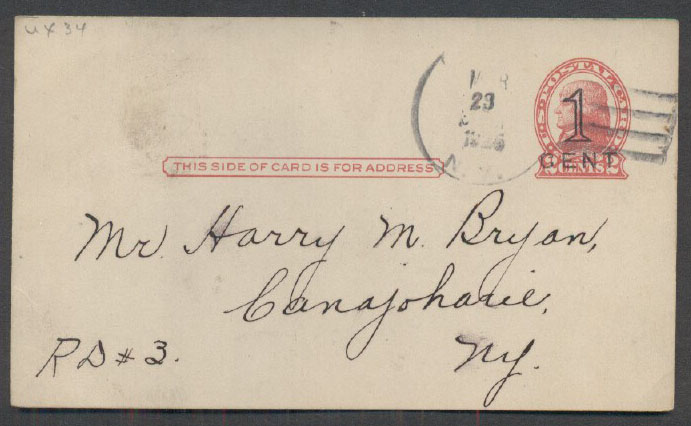 UX 34
23
1
CENT
THIS SIDE OF CARD IS FOR ADDRESS
Mr. Harry M. Bryan,
Canajoharie,
RD # 3.
Ny.